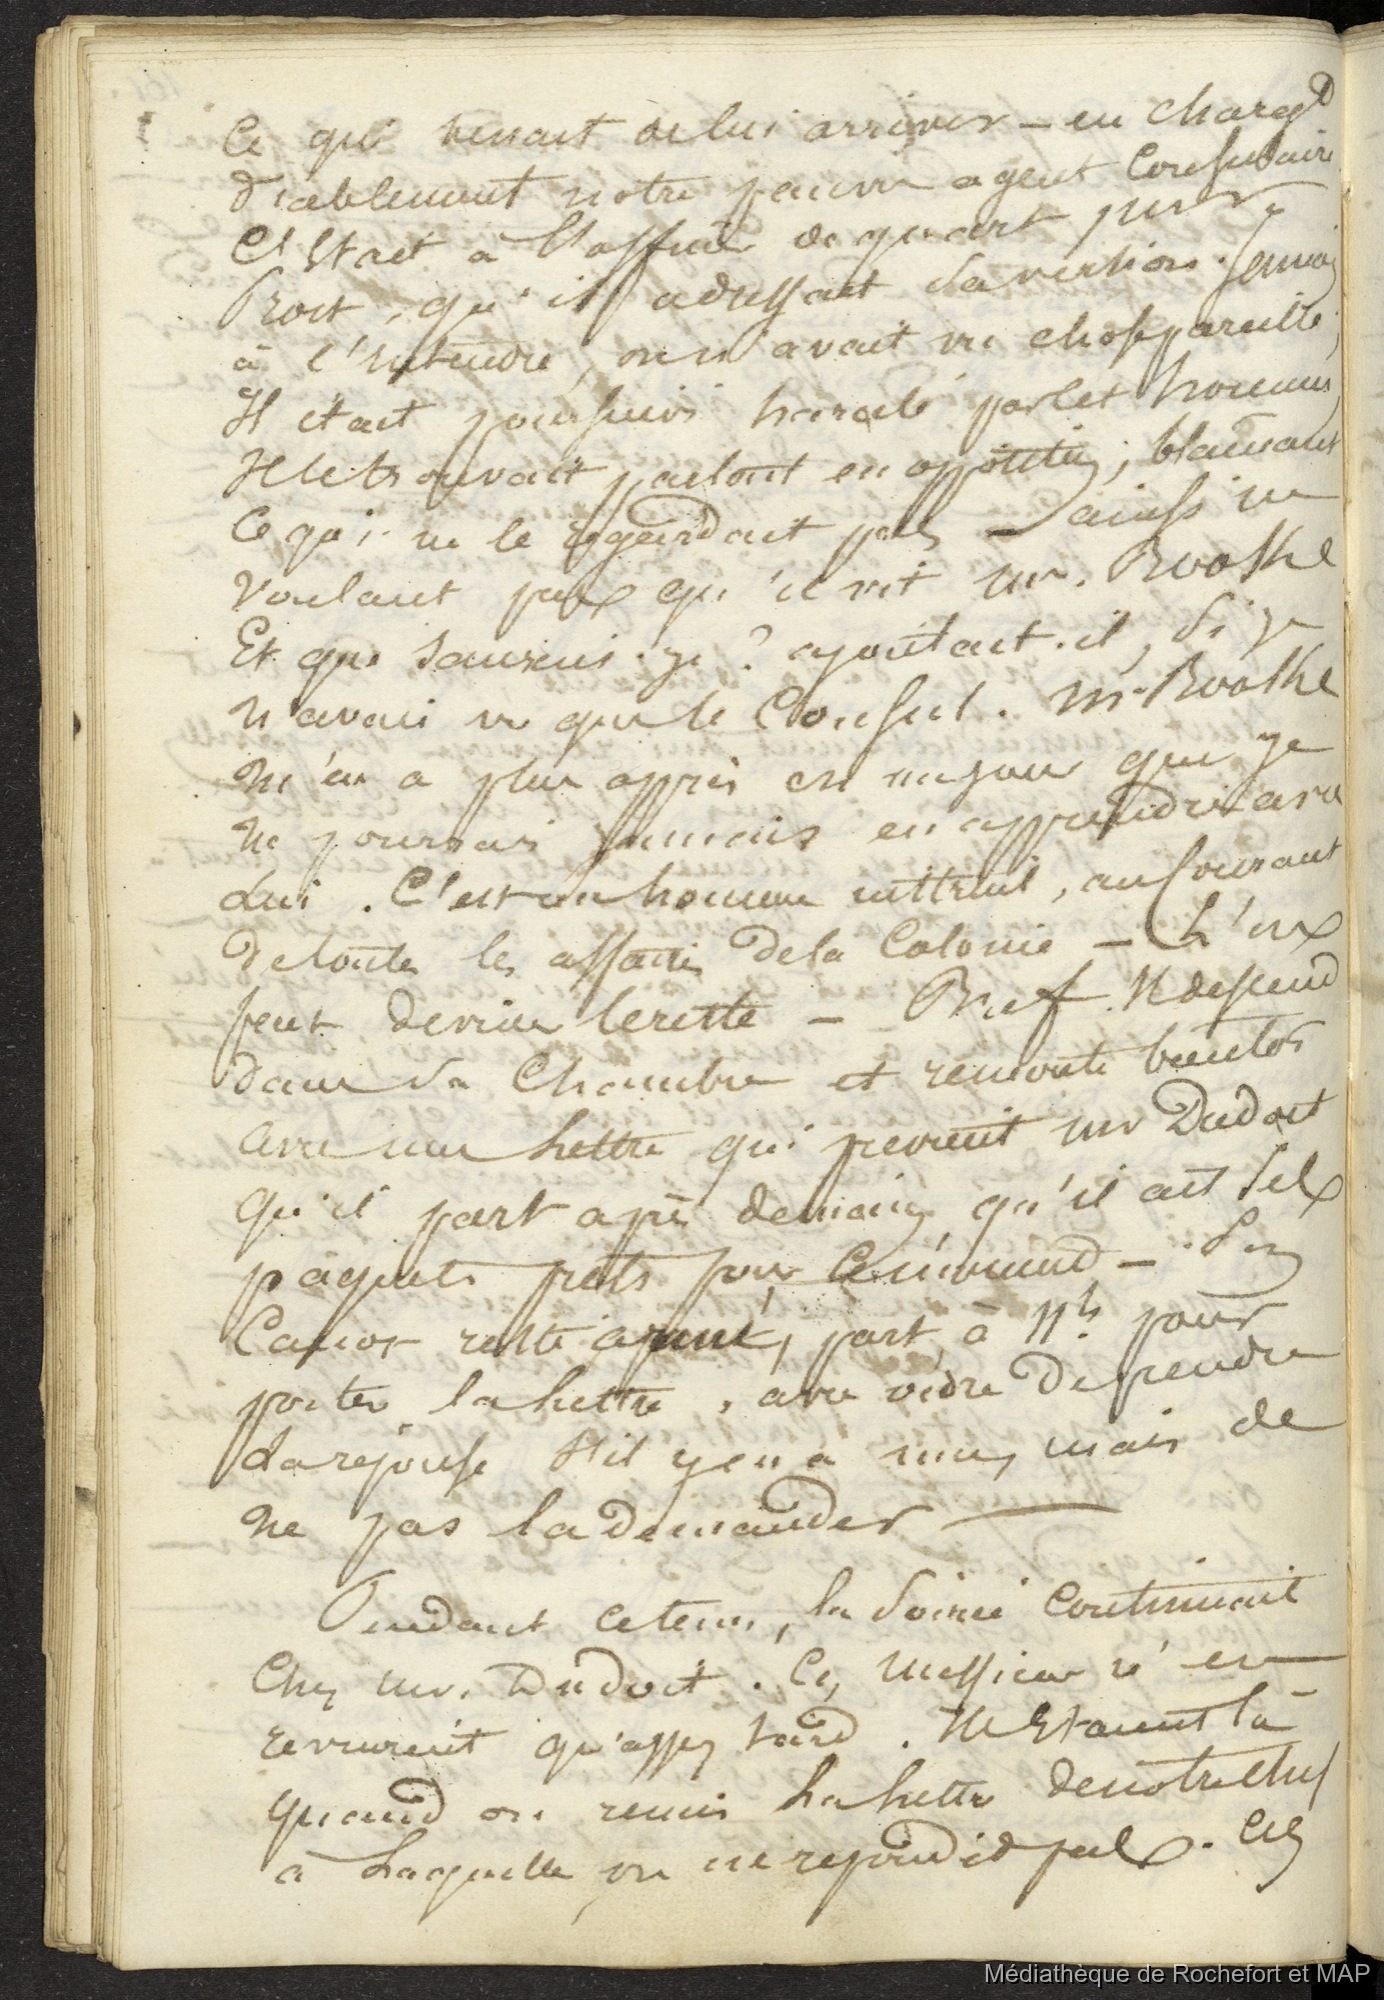 Ce qui venait de lui arriver – en chargt
diablement notre pauvre agent Consulaire
C'Etait à l'officier de quart Mr
Prost, qu'il adressait sa version. Jamais
à l'entendre, on n'avait vu chose pareille,
Il était poursuivi harcelé par cet homme,
Il le trouvait partout en opposition, blamant
Ce qui ne le regardait pas – ainsi ne
voulant pas qu'il vit Mr. Boothe
Et que saurais-je ? ajoutait-il, si je
n'avais vu que le Consul. Mr Boothe
M'en a plus appris en un jour que je
ne pourrais jamais en apprendre avec
Lui. C'est un homme instruit, au Courant
de toutes les affaires de la Colonie – L'on
peut deviner le reste – Bref Il descend
dans sa Chambre et remonte bientôt
avec une lettre qui previent Mr Dudoit
qu'il part après demain, qu'il ait ses
paquets prets pour ce moment – Son
Canot resté armé, part à 11h pour
porter la lettre, avec ordre de prendre
La réponse s'il y en a une, mais de
ne pas la demander –
Pendant ce tems, la Soirée Continuait
Chez Mr. Dudoit. Ces Messieurs n'en
revinrent qu'assez tard. Ils Etaient là
quand on remis la lettre de notre chef
à Laquelle on ne repondit pas. Ces
Médiathèque de Rochefort et MAP